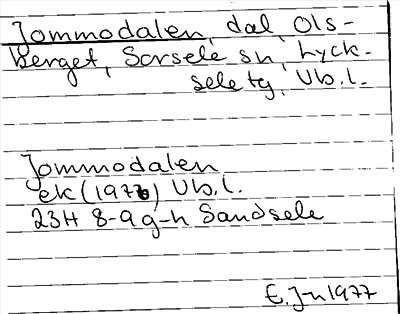 Jommodalen, dal, Ols-
berget, Sorsele sn, Lyck-
sele tg, Vb.l.
Jommodalen
ek (1976) Vb.l.
23H 8-9 g-h Sandsele
E. J-n 1977